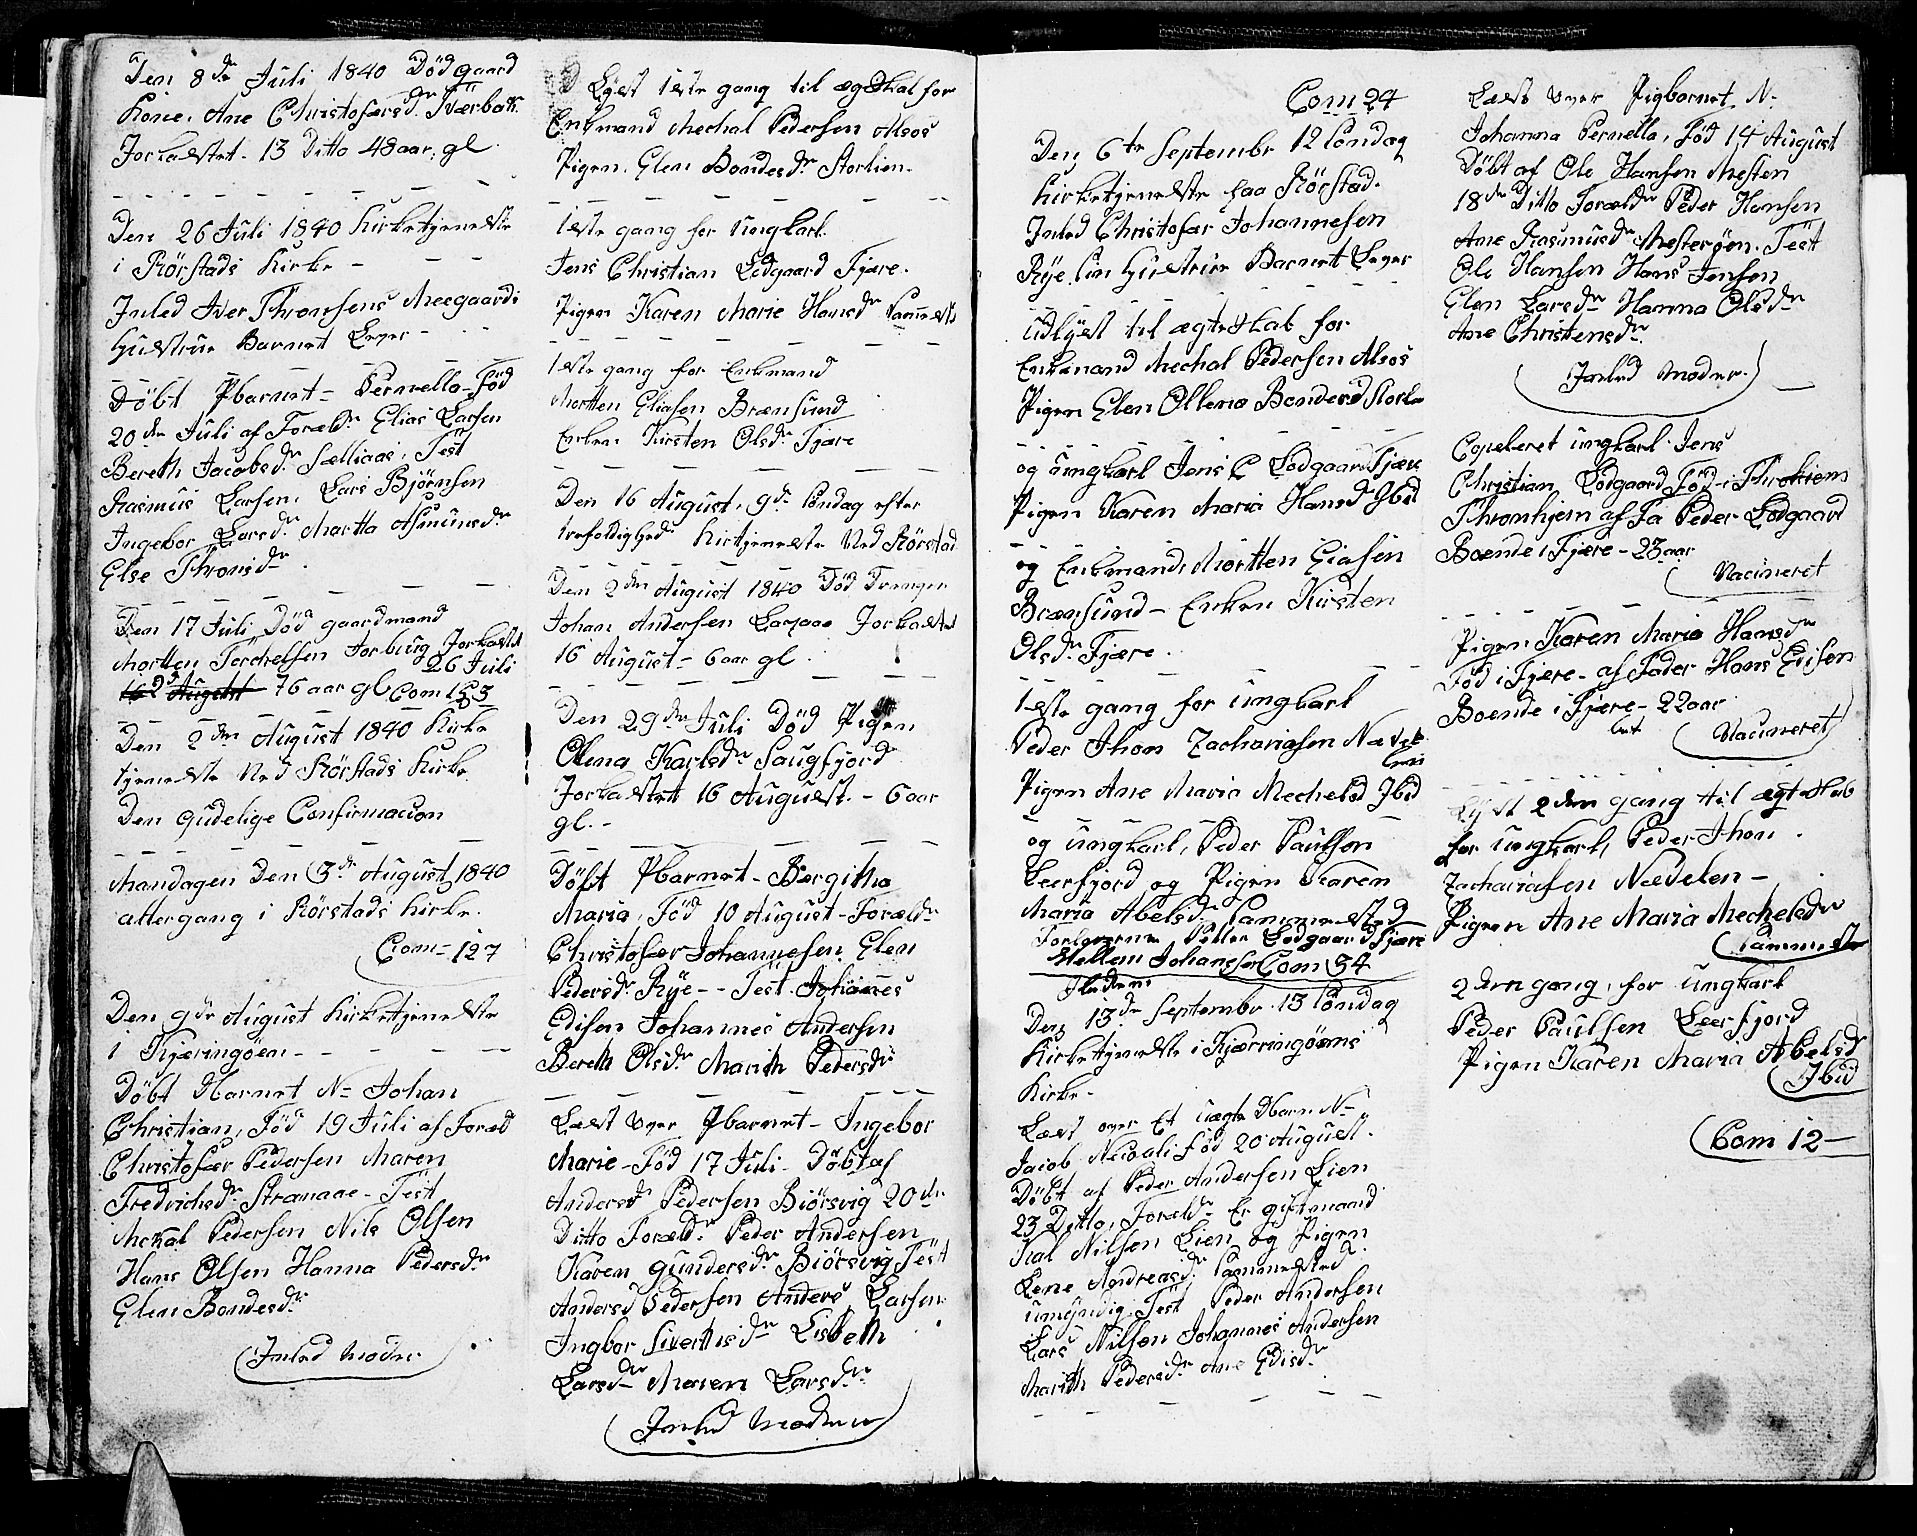 Den 8de Juli 1840 Död gaard
Kone. Ane Christofersdr Tværbak
Jorkastet. 13 Ditto 48 aar. gl
Den 26 Juli 1840 Kirketjeneste
i Rörstads Kirke -
Inled Iver Thronsens Meegaards
Hustrue Barnet Lever -
Döbt Pbarnet - Pernella - Föd
20de Juli af Forældr Elias Larsen
Bereth Jacobsdr Sælliaas, Test
Rasmus Larsen, Lars Björnsen
Ingebor Larsdr Martha Asmunsdr
Else Thronsdr
Den 17 Juli Död gaardmand
Mortten Torchelsen Torburg Jorkastet
26 Juli
16 2d August 76 aar gl Com 153
Den 2den August 1840 Kirke
tjeneste Ved Rörstads Kirke
Den gudelige Confirmacion
Mandagen Den 3de August 1840
altergang i Rörstads Kirke.
Com - 127
Den 9de August Kirketjeneste
i Kjæringöen -
Döbt Dbarnet N- Johan
Christian, Föd 19 Juli af Foræld
Christofær Pedersen Maren
Fredrichsdr Stranaae - Test
Mekal Pedersen Nils Olsen
Hans Olsen Hanna Pedersdr
Elen Bondesdr
Inled Moder
Lyst 1ste gang til ægtskab for
Enkmand Mechal Pedersen Alsos
Pigen. Elen Bondesdr Storlien.
1ste gang for ungkarl.
Jens Christian Lodgaard Fjære.
Pigen Karen Marie Hansdr Sammests
1ste gang for Enkmand
Mortten Eliasen Brænsund
Enken Kirsten Olsdr Fjære
Den 16 August, 9de Söndag efter
trefoldighed Kirktjeneste Ved Rörstad
Den 2den August 1840 Död Drengen
Johan Andersen Jorkastet
16 August - 6 aar gl
Den 29de Juli Död Pigen
Olena Karlsdr Saugfjord
Jorkastet 16 August. - 6 aar
gl. -
Döbt Pbarnet - Bergitha
Maria, Föd 10 August - Forældr
Christofær Johannesen Elen
Pedersdr Rÿe - - Test Johannes
Edisen Johannes Andersen
Bereth Olsdr Marith Pedersdr
Læst over Pbarnet - Ingebor
Marie - Föd 17 Juli - Döbt af
Andersdr Pedersen Biörsvig 20de
Ditto Forældr Peder Andersen
Karen Gundersdr Biörsvig Test
Anders Pedersen Anders Larsen
Ingbor Sivertsdr Lisbeth
Larsdr Maren Larsdr
Inled Moderen
Com 24
Den 6te Septembr 12 Söndag
Kirketjeneste paa Rörstad.
Inled Christofær Johannesen
Rÿe sin Hustrue Barnet Lever
Udlyst til ægteskab for
Enkemand Mechal Pedersen Alsos
Pigen Elen Ollena Bondesd Storl
og ungkarl Jens C Lodgaard Fjære
Pigen Karen Maria Hansd Ibid
og Enkemand Mortten Eiasen
Brænsund - Enken Kirsten
Olsdr Fjære.
1ste gang for ungkarl
Peder Jhon Zachariasen Nævel
Pigen Ane Maria Mechelsd Ibid
og ungkarl, Peder Paulsen
Leerfjord og Pigen Karen
Maria Abelsdr Sammested
Forloverne Petter Lodgaard Fjære
Hellem Johansen Com 34
Den 13de Septembr 13 Söndag
Kirketjeneste i Kjærringöens
Kirke.
Læst over Et uægte Dbarn N-
Jacob Nicolai föd 20 August.
Döbt af Peder Andersen Lien
23 Ditto, Foræld- En giftmand
Kal Nilsen Lien og Pigen
Lene Andreasdr Sammested.
umyndig. Test Peder Andersen
Lars Nilsen Johannes Andersen
Marith Pedersdr Ane Edisdr
Læst over Pigbarnet N-
Johanna Pernella, Föd 14 August
Döbt af Ole Hansen Mesten
18de Ditto Forældr Peder Hansen
Ane Rasmusdr Mesteröen. Test
Ole Hansen Hans Jensen
Elen Larsdr Hanna Olsdr
Ane Christensdr
Inled Moder.
Copuleret ungkarl Jens
Christian Lodgaard Föd i Throkiem
Thronhjem af Fa Peder Lodgaard
Boende i Fjære - 23 aar
Vacineret
Pigen Karen Maria Hansdr
Föd i Fjære - af Fader Hans Edisen
Boende i Fjære - 22 aar
Vacineret
Lyst 2den gang til ægteskab
for ungkarl, Peder Jhon
Zachariasen Nædelen -
Pigen Ane Maria Mechelsdr
Sammeste
2den gang, for ungkarl
Peder Paulsen Leerfjord
Pigen Karen Maria Abelsd
Ibid
Com 12 -